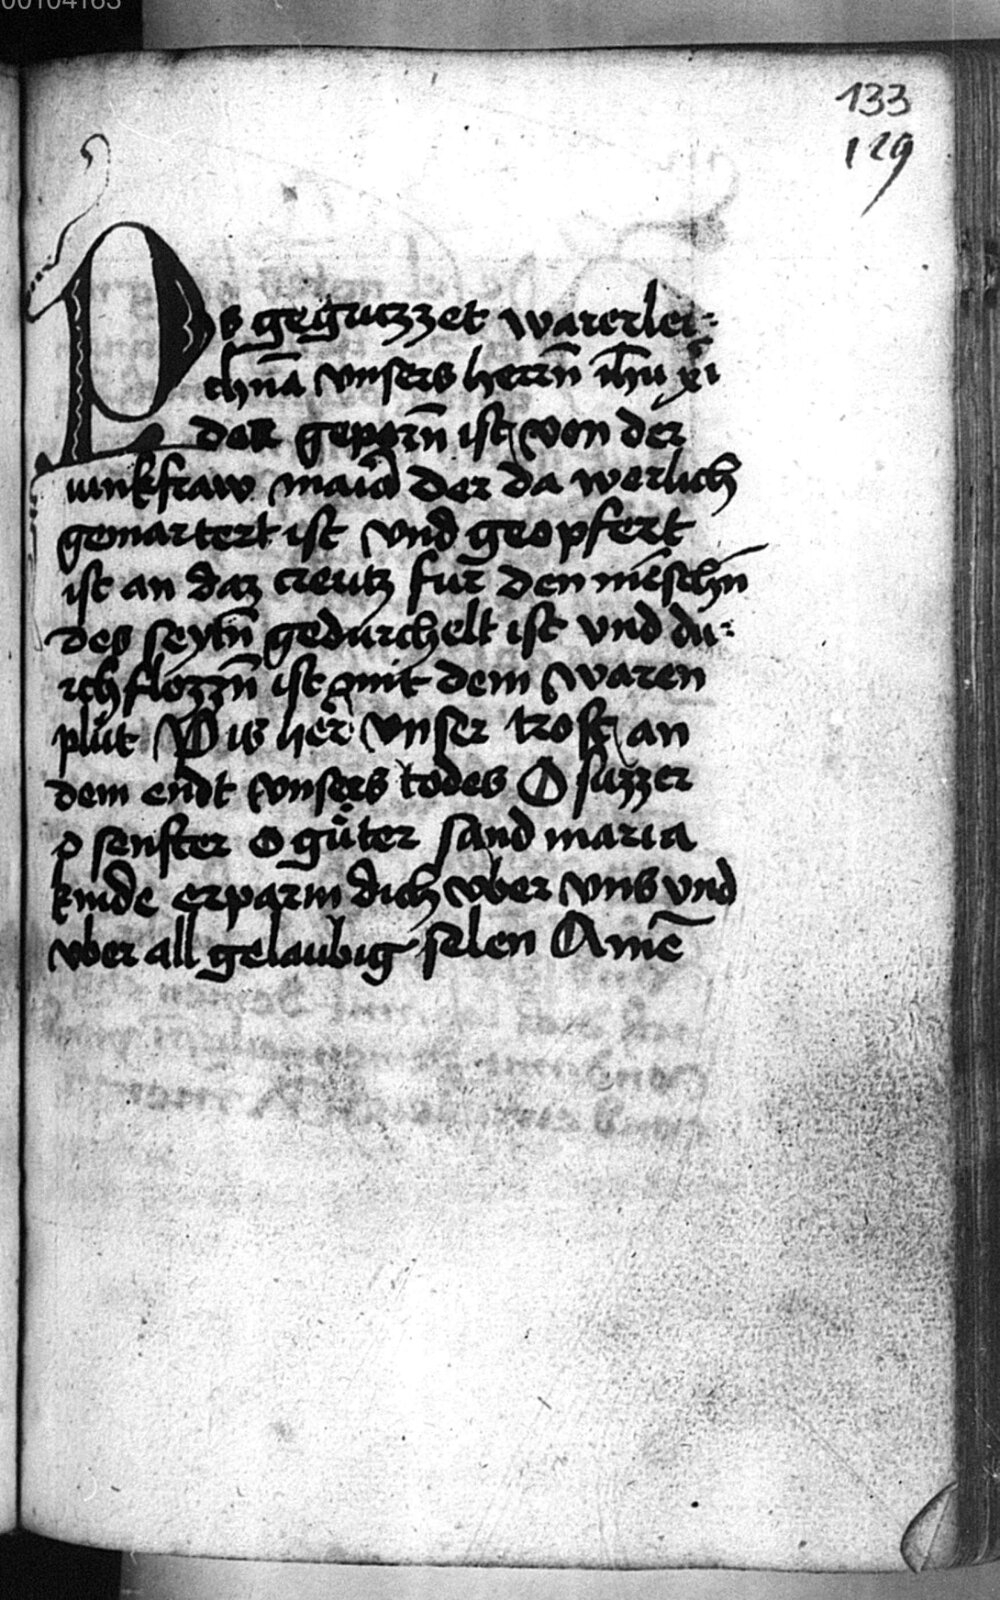 00104163
133
129
Ps gegruzzet warer lei-
chnā vnsers herrn̄ ih̄u xp̄i
der geporn̄ ist von der
iunkfraw maria der da werlich
gemartert ist vnd geopfert
ist an daz creutz fur den mēschn̄
des seytn̄ gedurchelt ist vnd du-
rch flozzn̄ ist mit dem waren
plut Wis her vnser trost an
dem endt vnsers todes O suzzer
o senfter o gůter sand maria
kinde erparm dich vber vns vnd
vber all gelaubig selen Amē